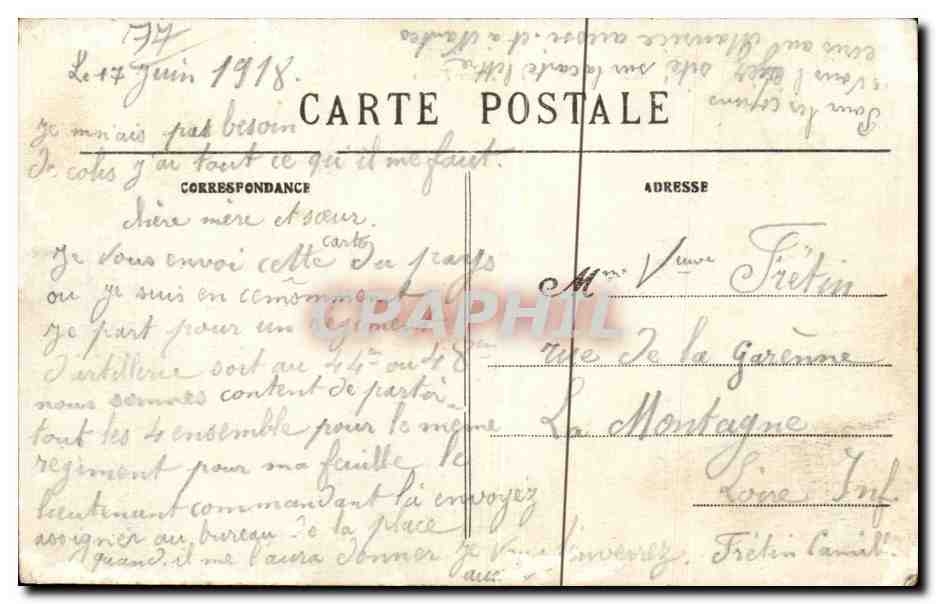 77
Le 17 Juin 1918.
Pour les copains
écris aux Maurice aussi. et à Nantes
CARTE POSTALE
Je m'n'ais pas besoin
de colis j'ai tout ce qu'il me faut.
CORRESPONDANCE
ADRESSE
Chère mère et sœur.
Je vous envoi cette carte du pays
ou je suis en cemömment
Je part pour un regiment
d'artillerie soit au 44m ou 48em
nous sommes content de partir
tout les 4 ensemble pour le même
régiment pour ma feuille le
lieutenant commandant là envoyez
assigner au bureau de la place
quand il me l'aura donner je vous l'enverrez. Frétin Camil
Mme Veuve Frétin
rue de la Garènne
La Montagne
Loire Inf
CPAPHIL